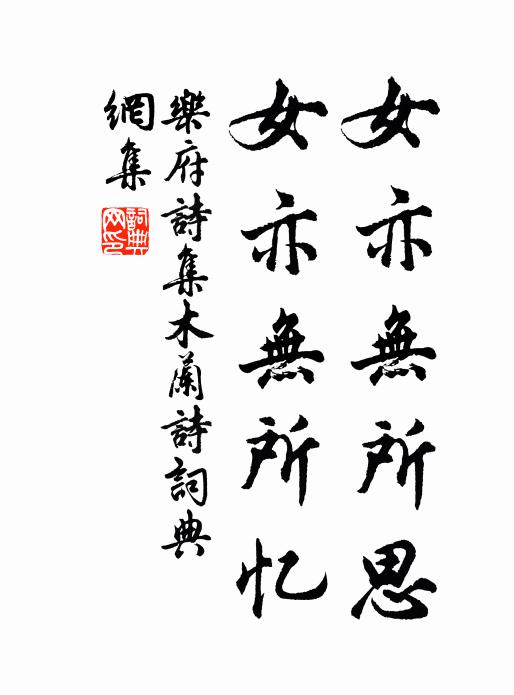 女亦無所思
女亦無所忆
樂府詩集木蘭詩詞典
網集
詞典網印